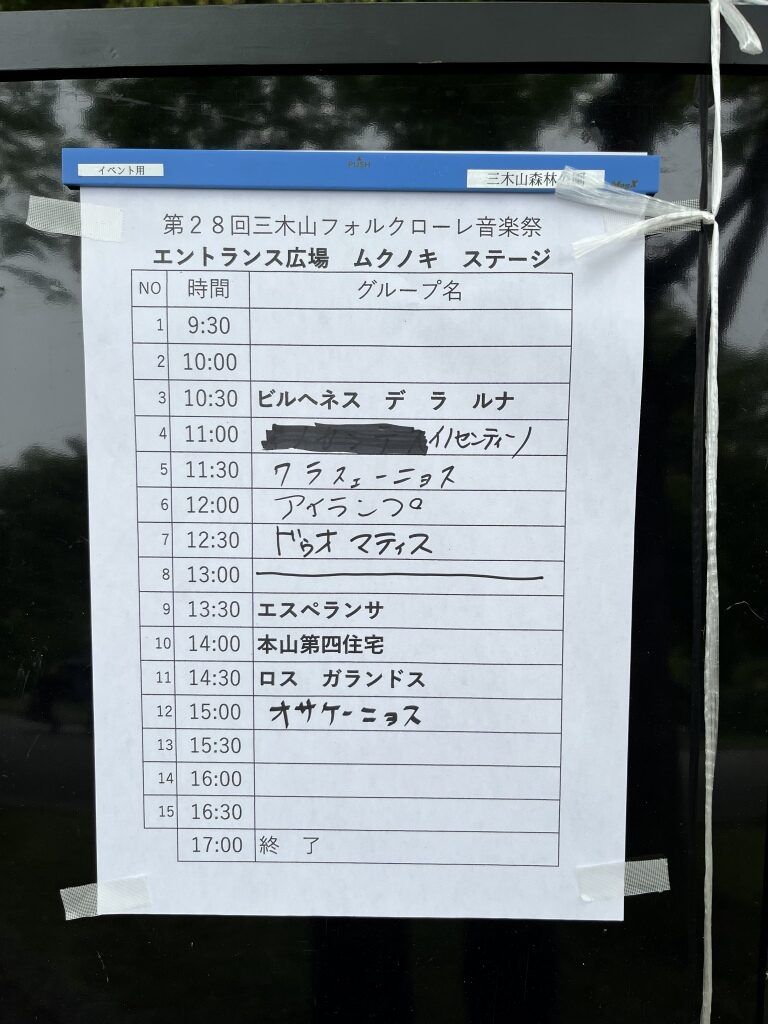 イベント用
PUSH
三木山森林公園
第28回三木山フォルクローレ音楽祭
エントランス広場　ムクノキ　ステージ
NO 時間 グループ名
1 9:30
2 10:00
3 10:30 ビルヘネス　デ　ラ　ルナ
4 11:00 イノセンティーノ
5 11:30 ワラスェーニョス
6 12:00 アイランプ
7 12:30 ドゥオ マティス
8 13:00
9 13:30 エスペランサ
10 14:00 本山第四住宅
11 14:30 ロス　ガランドス
12 15:00 オサケーニョス
13 15:30
14 16:00
15 16:30
17:00 終　了